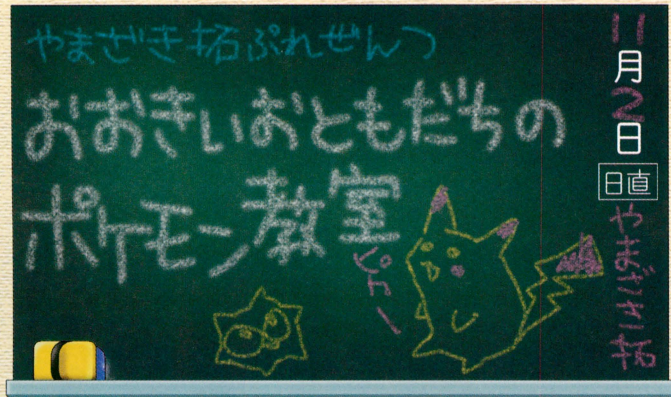 やまざき拓ぷれぜんつ
おおきいおともだちの
ポケモン教室
ピカー
11月2日
日直
やまざき拓